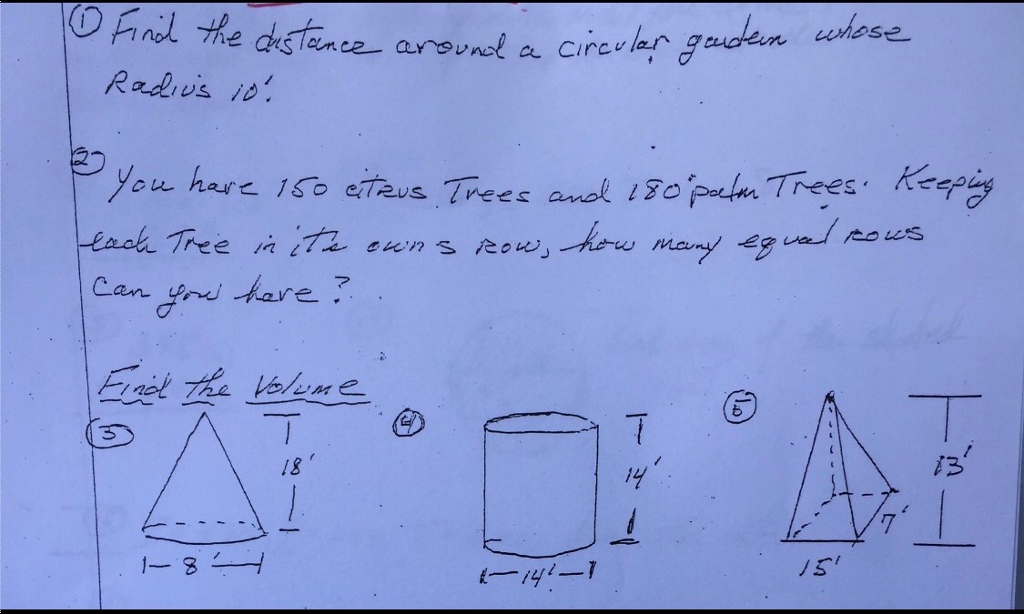 ① Find the distance around a circular garden whose
Radius 10'.
② You have 150 citrus Trees and 180 palm Trees. Keeping
each Tree in it's own s row, how many equal rows
Can you have?
Find the Volume
③
18'
8'
④
14'
14'
⑤
13'
7'
15'